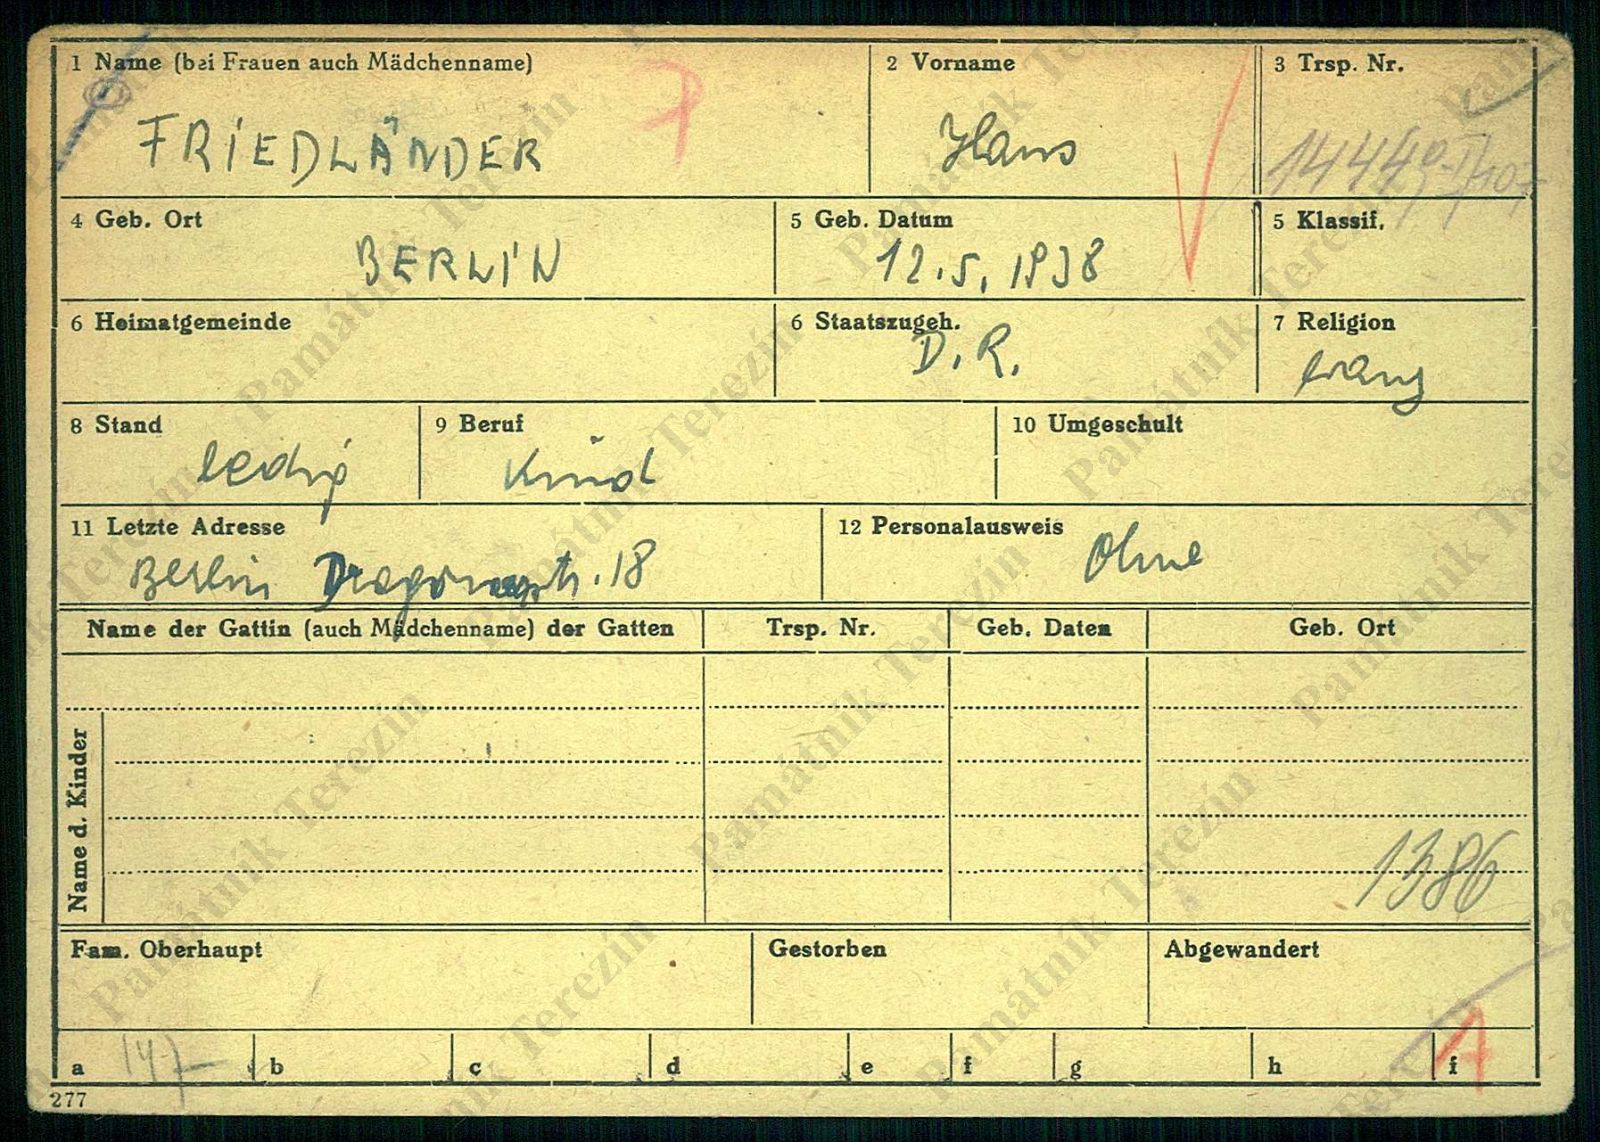 1 Name (bei Frauen auch Mädchenname)
2 Vorname
3 Trsp. Nr.
FRIEDLÄNDER
Hans
4 Geb. Ort
5 Geb. Datum
5 Klassif.
BERLIN
12.5.1938
6 Heimatgemeinde
6 Staatszugeh.
7 Religion
D.R.
evang
8 Stand
9 Beruf
10 Umgeschult
ledig
Kind
11 Letzte Adresse
12 Personalausweis
Berlin Dragonerstr. 18
Ohne
Name der Gattin (auch Mädchenname) der Gatten
Trsp. Nr.
Geb. Daten
Geb. Ort
Name d. Kinder
1386
Fam. Oberhaupt
Gestorben
Abgewandert
a
b
c
d
e
f
g
h
f
277
Památník Terezín